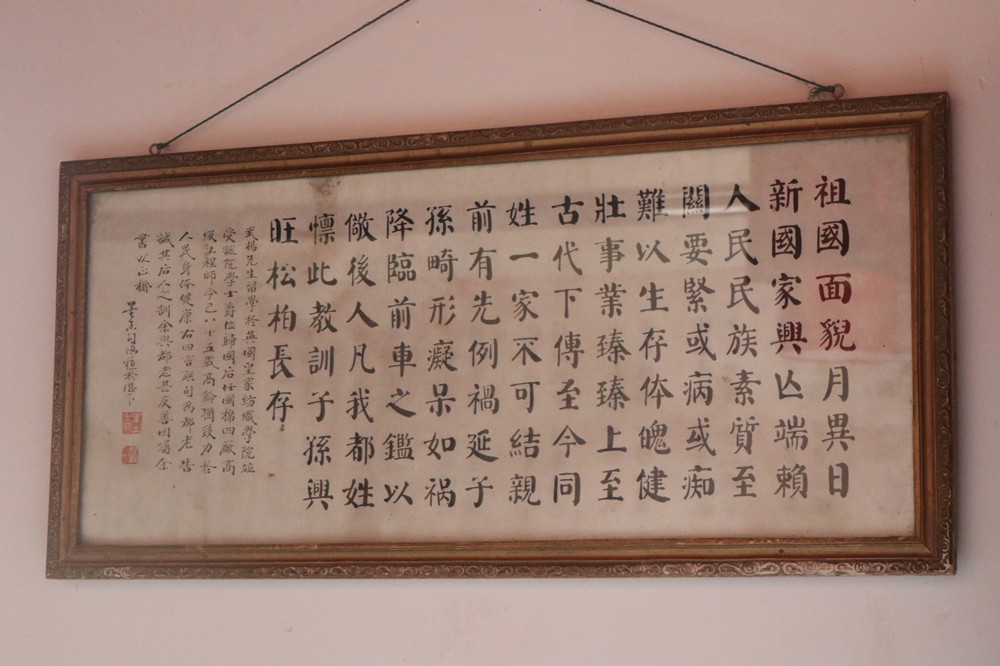 祖國面貌月異日
新國家興亾端賴
人民民族素質至
關要緊或病或痴
難以生存体魄健
壯事業臻臻上至
古代下傳至今同
姓一家不可結親
前有先例禍延子
孫畸形癡呆如祸
降臨前車之鑑以
儆後人凡我都姓
懔此教訓子孫興
旺松柏長存
先生留學於英國皇家紡織學院並
受該院學士爵位歸國后任國棉四廠高
级工程師今已八十五歲高齡猶致力於
人民身体健康右四言联句為都老告
誡其后人之訓余與都老甚友善因囑余
書以